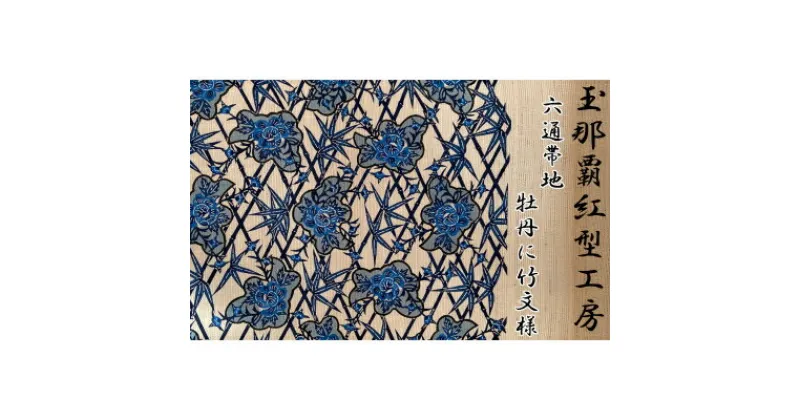 玉那覇紅型工房
六通帯地
牡丹に竹文様